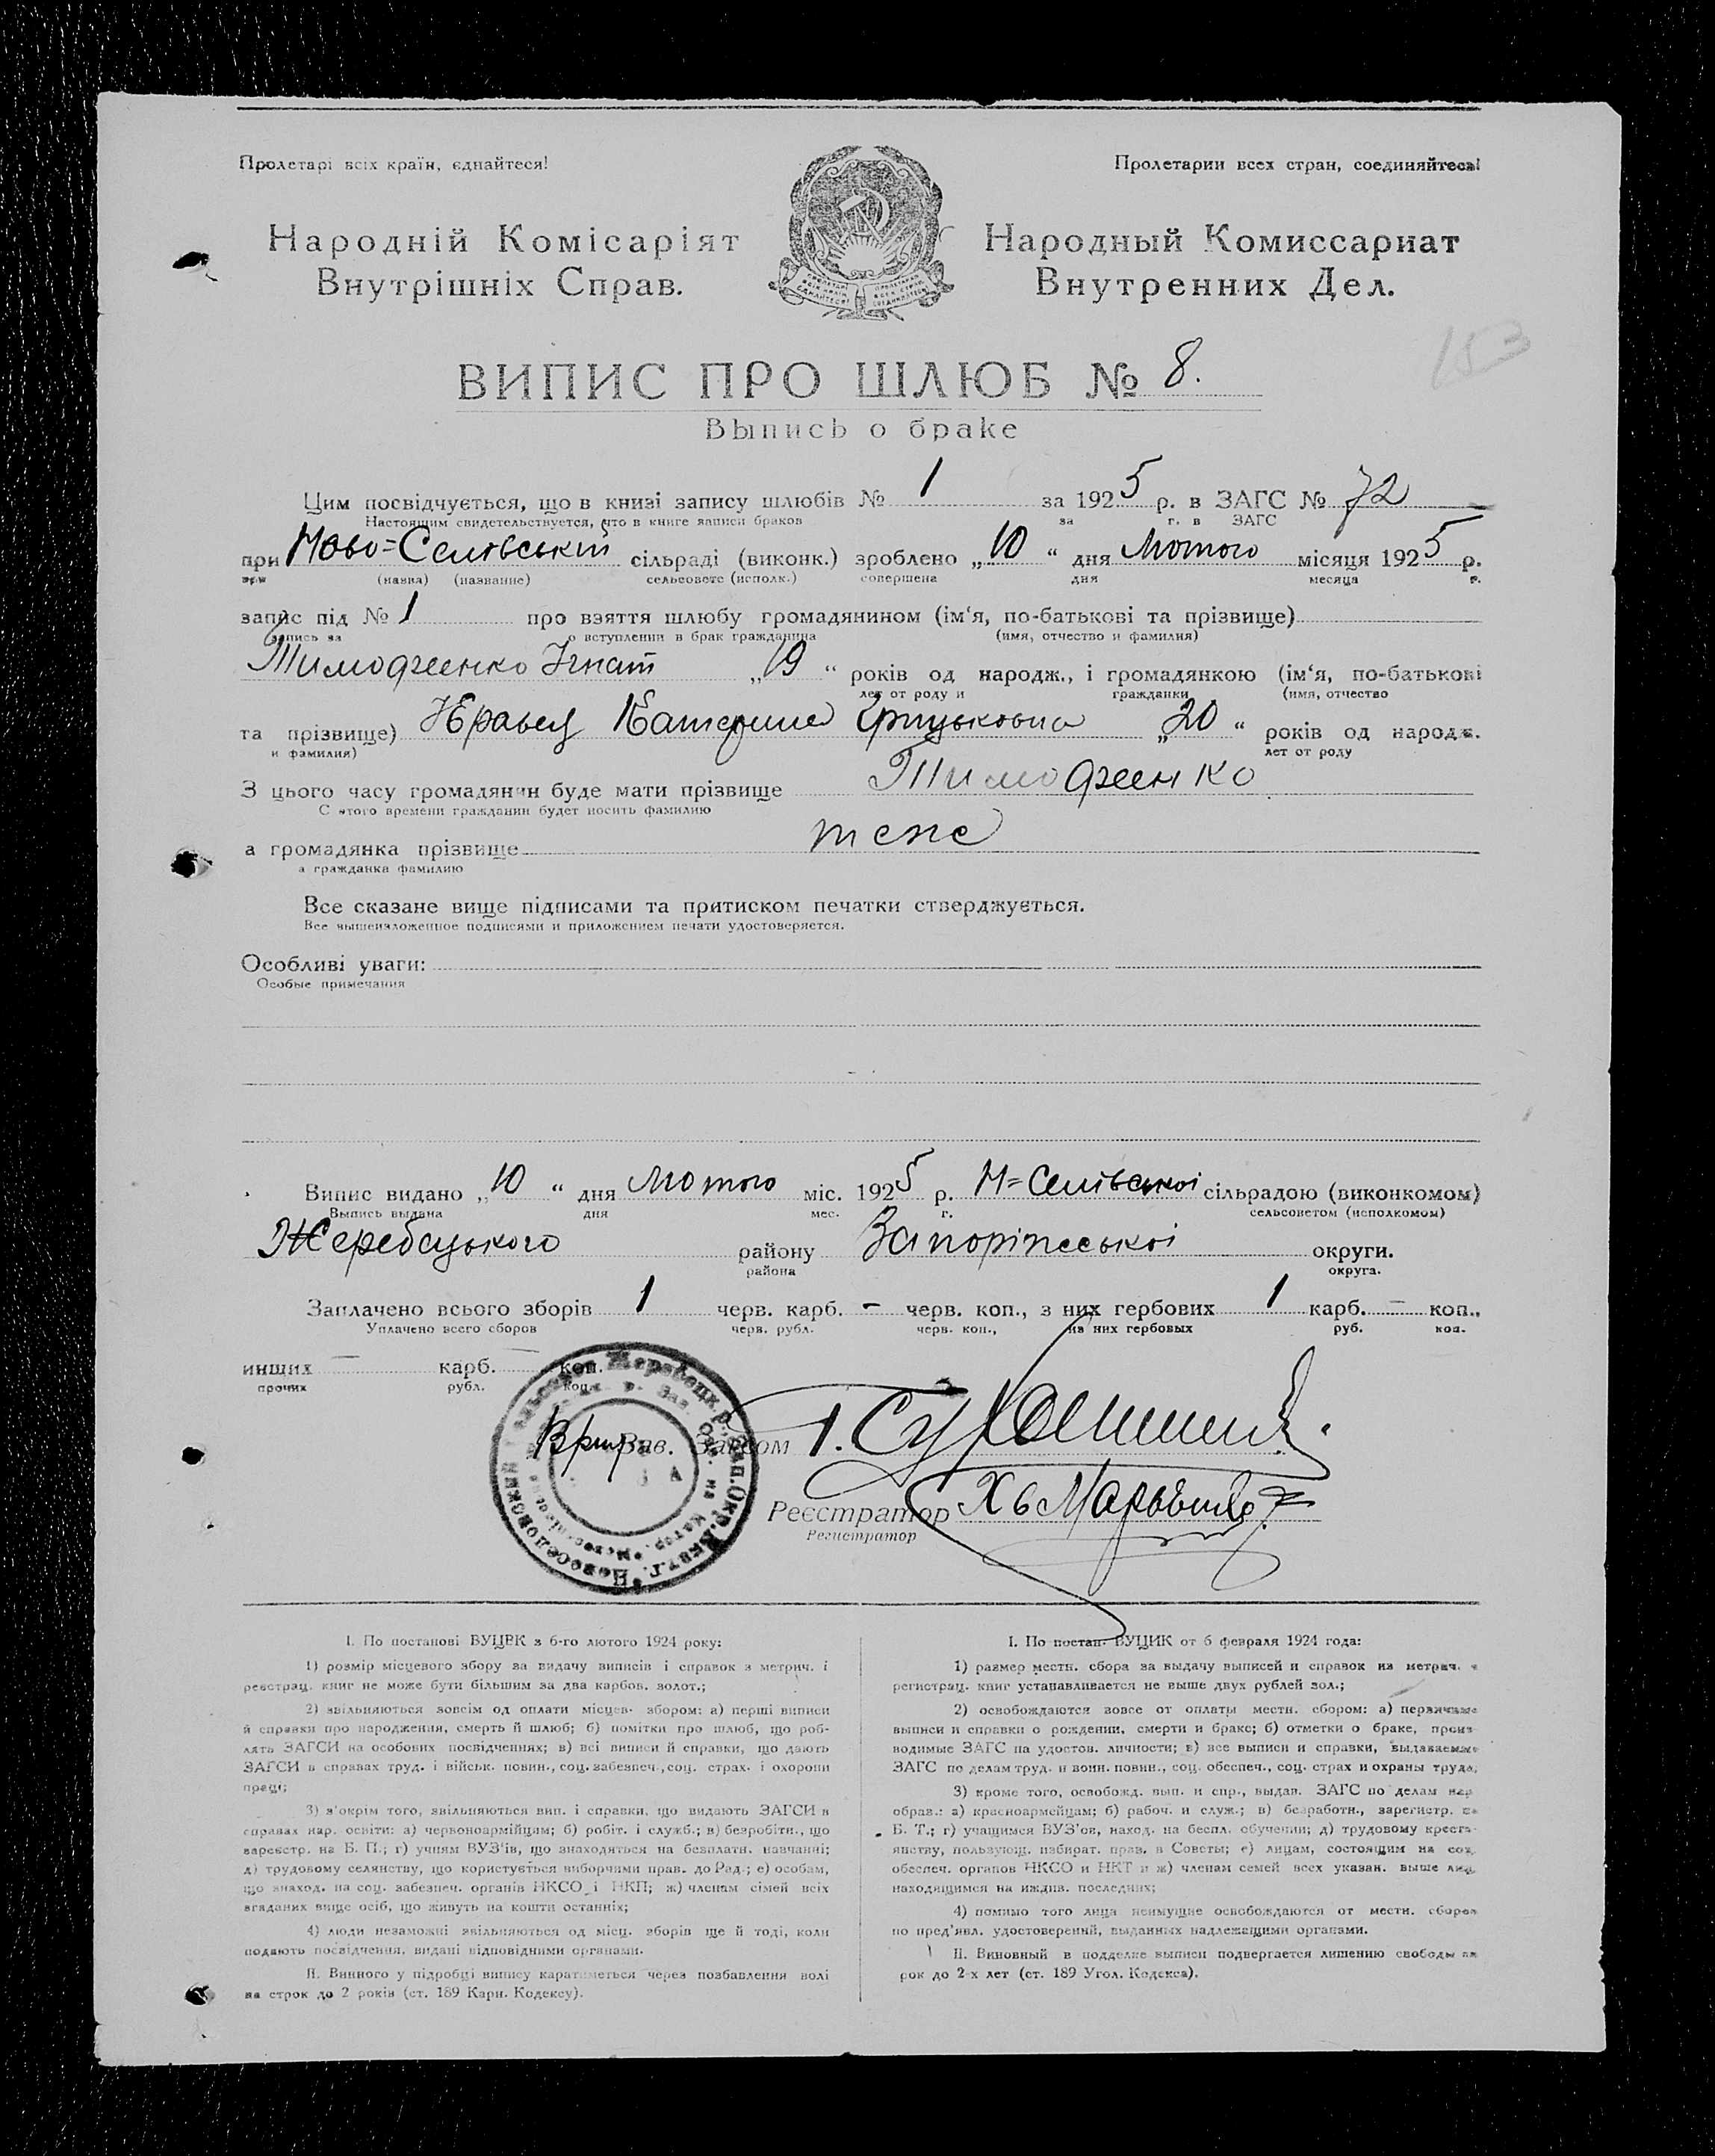 Пролетарі всіх країн, єднайтеся!
Пролетарии всех стран, соединяйтесь!
Народній Комісаріят
Внутрішніх Справ.
Народный Комиссариат
Внутренних Дел.
153
ВИПИС ПРО ШЛЮБ № 8.
Выпись о браке
Цим посвідчується, що в книзі запису шлюбів № 1 за 1925 р. в ЗАГС № 72
Настоящим свидетельствуется, что в книге записи браков за г. в ЗАГС
при Ново=Селівській сільраді (виконк.) зроблено „10“ дня Лютого місяця 1925 р.
при (назва) (название) сельсовете (исполк.) совершена дня месяца г.
запис під № 1 про взяття шлюбу громадянином (ім‘я, по-батькові та прізвище)
запись за о вступлении в брак гражданина (имя, отчество и фамилия)
Тимофеенко Ігнат „19“ років од народж., і громадянкою (ім‘я, по-батькові
лет от роду и гражданки (имя, отчество
та прізвище) Кравец Катерина Грицьковна „20“ років од народж.
и фамилия) лет от роду
З цього часу громадянин буде мати прізвище Тимофеенко
С этого времени гражданин будет носить фамилию
а громадянка прізвище теже
а гражданка фамилию
Все сказане вище підписами та притиском печатки стверджується.
Все вышеизложенное подписями и приложением печати удостоверяется.
Особливі уваги:
Особые примечания
Випис видано „10“ дня Лютого міс. 1925 р. Н=Селівської сільрадою (виконкомом)
Выпись выдана дня мес. г. сельсоветом (исполкомом)
Жеребецького району Запоріжської округи.
района округа.
Заплачено всього зборів 1 черв. карб. - черв. коп., з них гербових 1 карб. - коп.,
Уплачено всего сборов черв. рубл. черв. коп., из них гербовых руб. коп.
инших - карб. - коп.
прочих рубл. коп.
Зав. Загсом
Реєстратор
Регистратор
I. По постанові ВУЦВК з 6-го лютого 1924 року:
1) розмір місцевого збору за видачу виписів і справок з метрич. і
реєстрац. книг не може бути більшим за два карбов. золот.;
2) звільняються зовсім од оплати місцев. збором: а) перші виписи
й справки про народження, смерть й шлюб; б) помітки про шлюб, що роб-
лять ЗАГСИ на особових посвідченнях; в) всі виписи й справки, що дають
ЗАГСИ в справах труд. і військ. повин., соц. забезпеч., соц. страх. і охорони
праці;
3) з‘окрім того, звільняються вип. і справки, що видають ЗАГСИ в
справах нар. освіти: а) червоноармійцям; б) робіт. і служб.; в) безробітн., що
зареєстр. на Б. П.; г) учням ВУЗ‘ів, що знаходяться на безплатн. навчанні;
д) трудовому селянству, що користується виборчими прав. до Рад.; е) особам,
що знаход. на соц. забезпеч. органів НКСО і НКП; ж) членам сімей всіх
згаданих вище осіб, що живуть на кошти останніх;
4) люди незаможні звільняються од місц. зборів ще й тоді, коли
подають посвідчення, видані відповідними органами.
II. Винного у підробці випису каратиметься через позбавлення волі
на строк до 2 років (ст. 189 Карн. Кодексу).
I. По постан. ВУЦИК от 6 февраля 1924 года:
1) размер местн. сбора за выдачу выписей и справок из метрич. и
регистрац. книг устанавливается не выше двух рублей зол.;
2) освобождаются вовсе от оплаты местн. сбором: а) первичные
выписи и справки о рождении, смерти и браке; б) отметки о браке, произ-
водимые ЗАГС на удостов. личности; в) все выписи и справки, выдаваемые
ЗАГС по делам труд. и воин. повин., соц. обеспеч., соц. страх и охраны труда;
3) кроме того, освобожд. вып. и спр., выдав. ЗАГС по делам нар.
образ.: а) красноармейцам; б) рабоч. и служ.; в) безработн., зарегистр. на
Б. Т.; г) учащимся ВУЗ‘ов, наход. на беспл. обучении; д) трудовому кресть-
янству, пользующ. избират. прав. в Советы; е) лицам, состоящим на соц.
обеспеч. органов НКСО и НКТ и ж) членам семей всех указан. выше лиц,
находящимся на иждив. последних;
4) помимо того лица неимущие освобождаются от местн. сборов
по пред‘явл. удостоверений, выданных надлежащими органами.
II. Виновный в подделке выписи подвергается лишению свободы на
рок до 2-х лет (ст. 189 Угол. Кодекса).